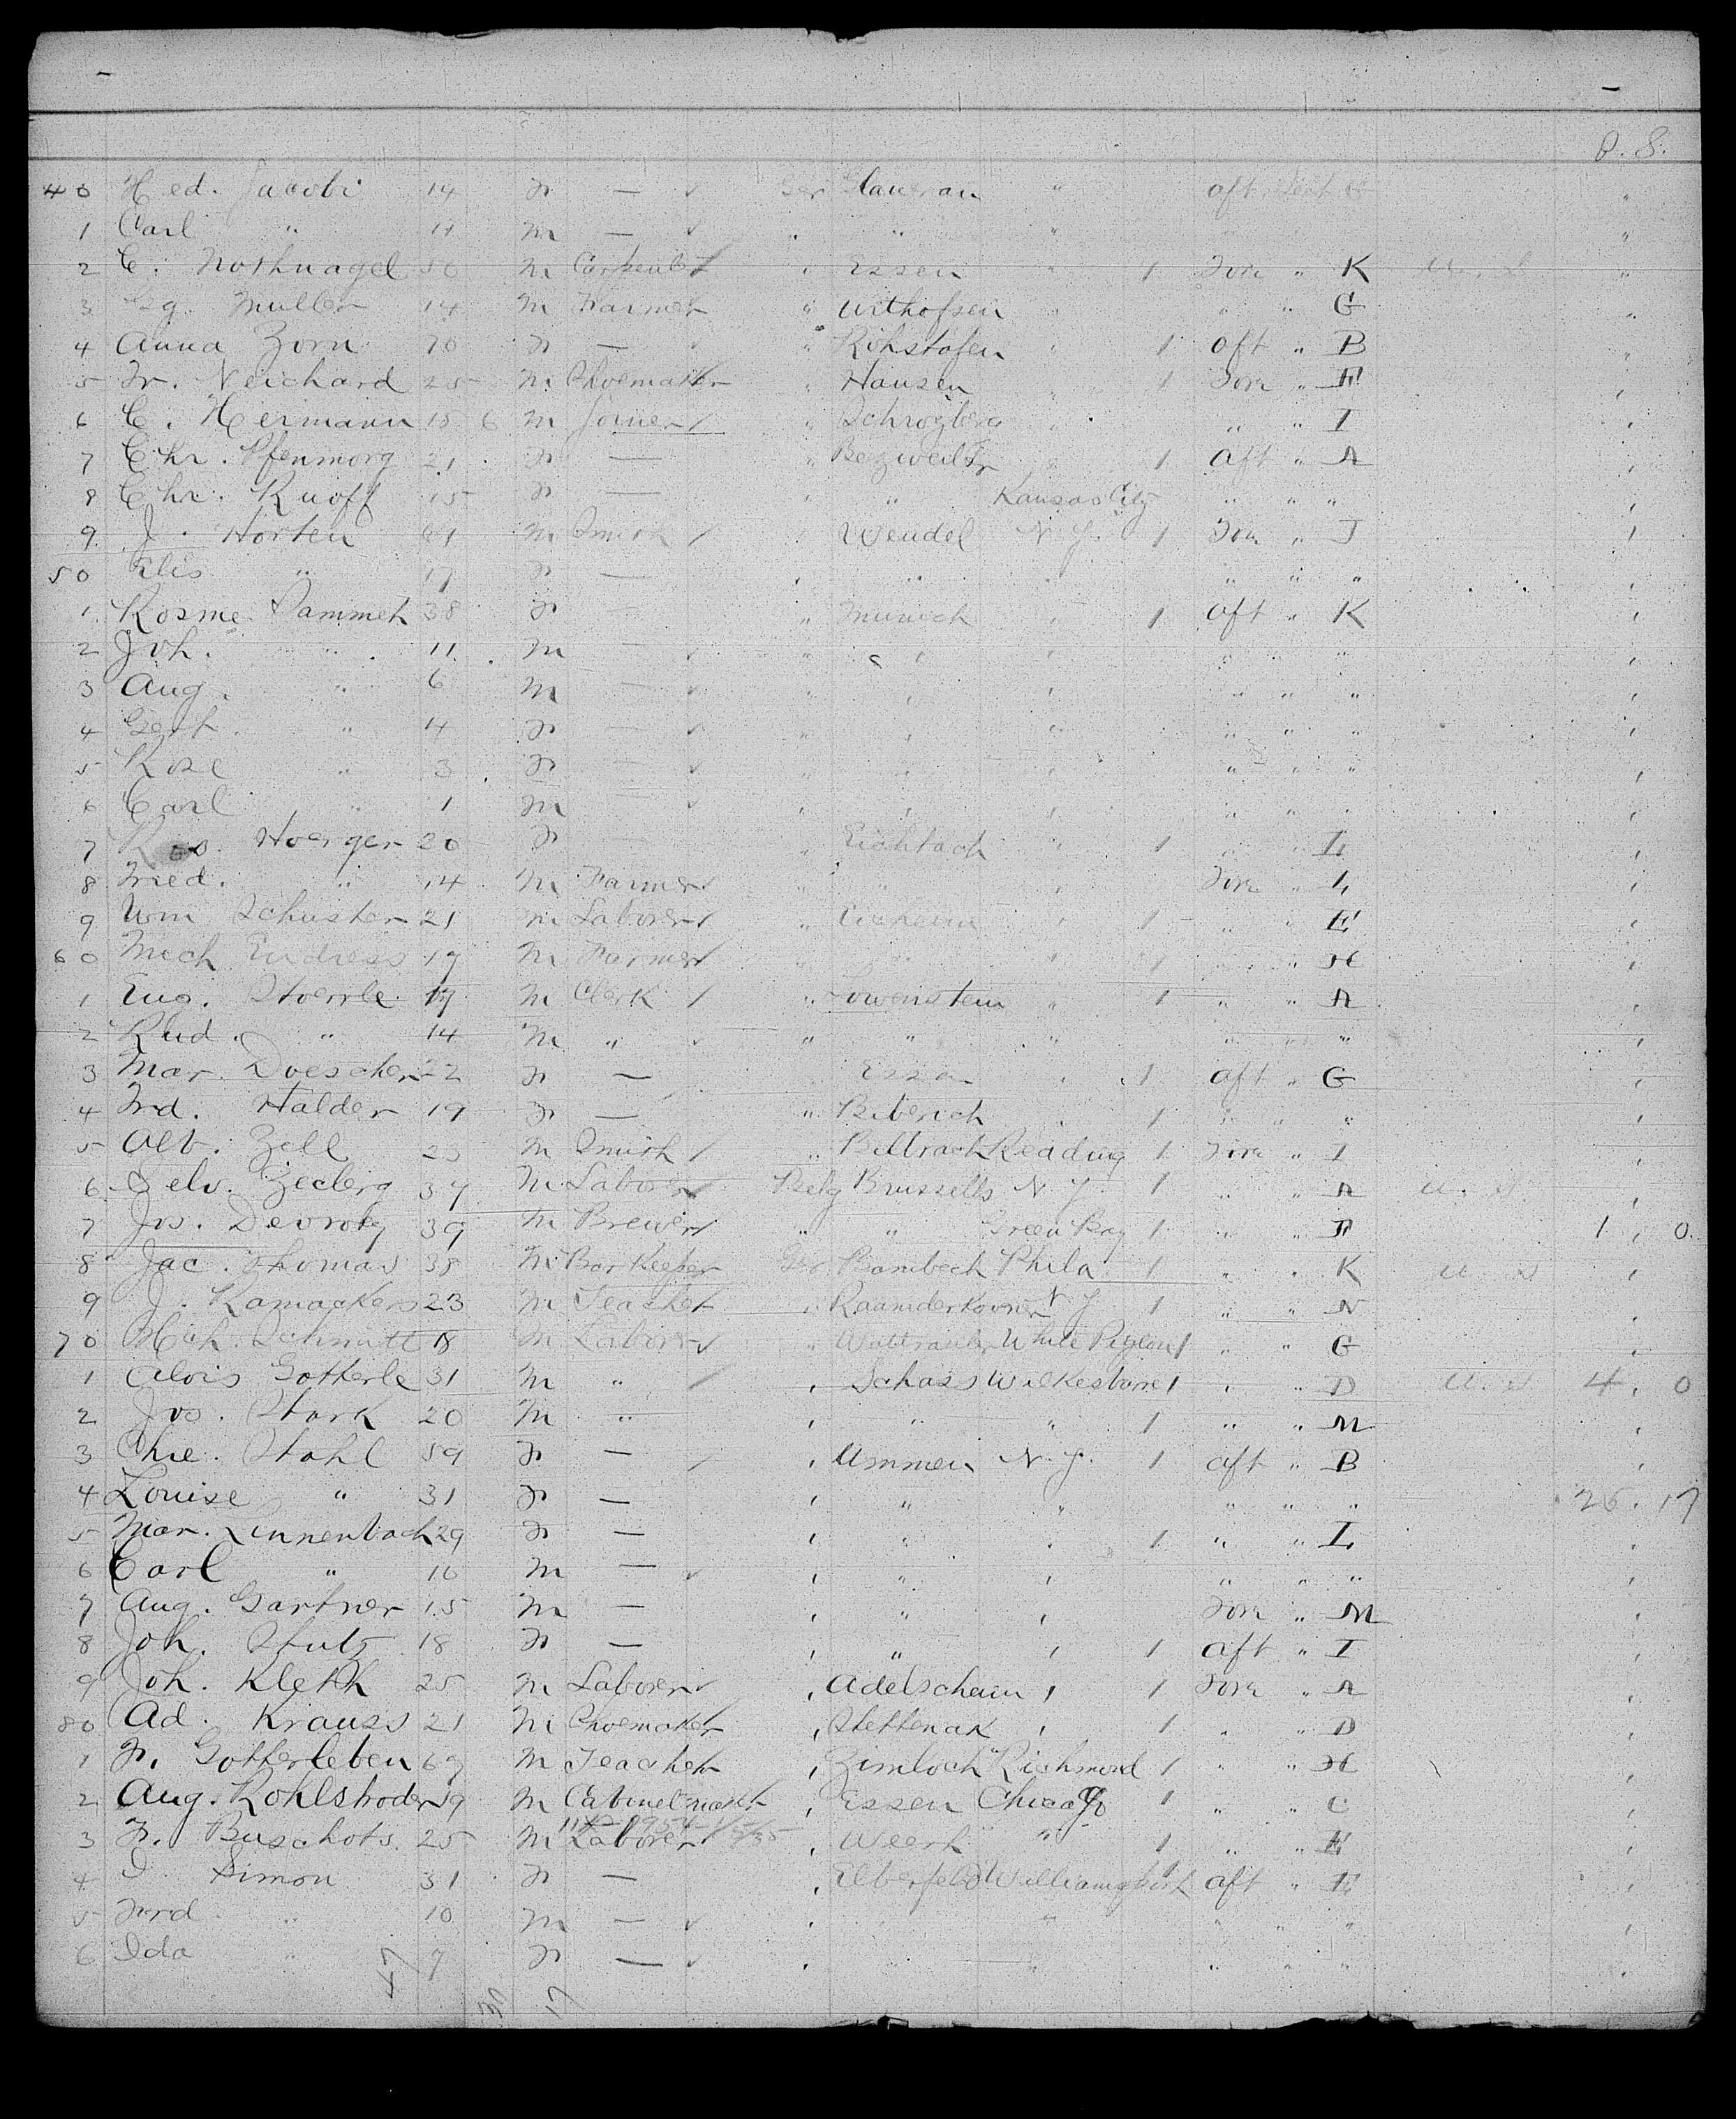 P. S.
40 Hed. Jacobi 14 F — ✓ Ger Glauran " aft Deat G "
1 Carl " 11 m — ✓ " " " "
2 C. Nothnagel 50 m Carpenter " Essen " 1 Fore " K U. S. "
3 Gg. Muller 14 M Farmer " Urthofsen " " G "
4 Anna Zorn 70 F — " " 1 aft " B "
5 Fr. Neichard 25 M Shoemaker " Hausen 1 Fore " F "
6 C. Hermann 15 6 m Joiner " Schrozberg " " I "
7 Chr. Pfenmorg 21 F — " 1 aft " A "
8 Chr. Knoff 15 F — " " Kansas City " " " "
9 J. Horten m Smith " Wendel N Y. 1 Fore " J "
50 Elis " 17 F — " " " " " " "
1 Rosme. Dammeh 38 F — " Munich " 1 aft " K "
2 Joh. " 11 m — ✓ " " " " " " "
3 Aug. " 6 m — ✓ " " " " " " "
4 Gert. " 4 F — ✓ " " " " " " "
5 Rose " 3 F — ✓ " " " " " " "
6 Carl " 1 m — ✓ " " " " " " "
7 Hoerger 20 F — " Eichtach " 1 " " L "
8 Fried. " 14 M Farmer " " " Fore " L "
9 Wm Schuster 21 m Laborer " " 1 " " E "
60 Mich Endress 19 M Farmer " " " 1 " " H "
1 Eug. Stoerrle 17 M Clerk " Lowenstein " 1 " " A "
2 Rud. " 14 M " ✓ " " " " " " "
3 Mar. Doescher 22 F — Essen " 1 aft " G "
4 Frd. Halder 19 F — " Biberich " 1 " " " "
5 Alb. Zell 25 M Smith " Biltrach Reading 1 Fore " I "
6 Selv. Zecberg 37 M Laborer Belg Brussells N Y. 1 " " A U. S. "
7 Jos. Devroty 39 M Brewer " " Green Bay 1 " " F 1, 0.
8 Jac. Thomas 38 M Bar Keeper Ger Bambech Phila 1 " " K U S "
9 J. Kamackers 23 m Teacher " Raamderkoorner N Y 1 " " N "
70 Mich. Schmitt 18 M Laborer " White Pigeon 1 " " G "
1 Alois Gotterle 31 M " " Schass Wilkesbarre 1 " " D U. S 4, 0
2 Jos. Stark 20 M " " " " 1 " " M "
3 Chre. Stahl 59 F — " Ummen N. Y. 1 aft " B "
4 Louise " 31 F — " " " " " " 26. 17
5 Mar. Linnenbach 29 F — " " " 1 " " L "
6 Carl " 10 m — ✓ " " " " " " "
7 Aug. Gartner 15 M — " " " Fore " M "
8 Joh. Stutz 18 F — " " " 1 aft " I "
9 Joh. Kleth 25 M Laborer ✓ " Adelscheim " 1 Fore " A "
80 Ad. Krauss 21 M Shoemaker " Stettenak " 1 " " D "
1 Fr. Gotterleben 67 M Teacher " Zimloch Richmond 1 " " H "
2 Aug. Kohlstroder 19 M Cabinetmaker " Essen Chicago 1 " " C "
11X- 1954-1/5/35
3 Fr. Buschots. 25 M Laborer " Weert " 1 " " E "
4 I. Simon 31 F — " Elberfeld Williamsport 1 aft " E "
5 Frd. " 10 M — ✓ " " " " " "
6 Ida " 9 F — ✓ " " " " " "
47 30 17